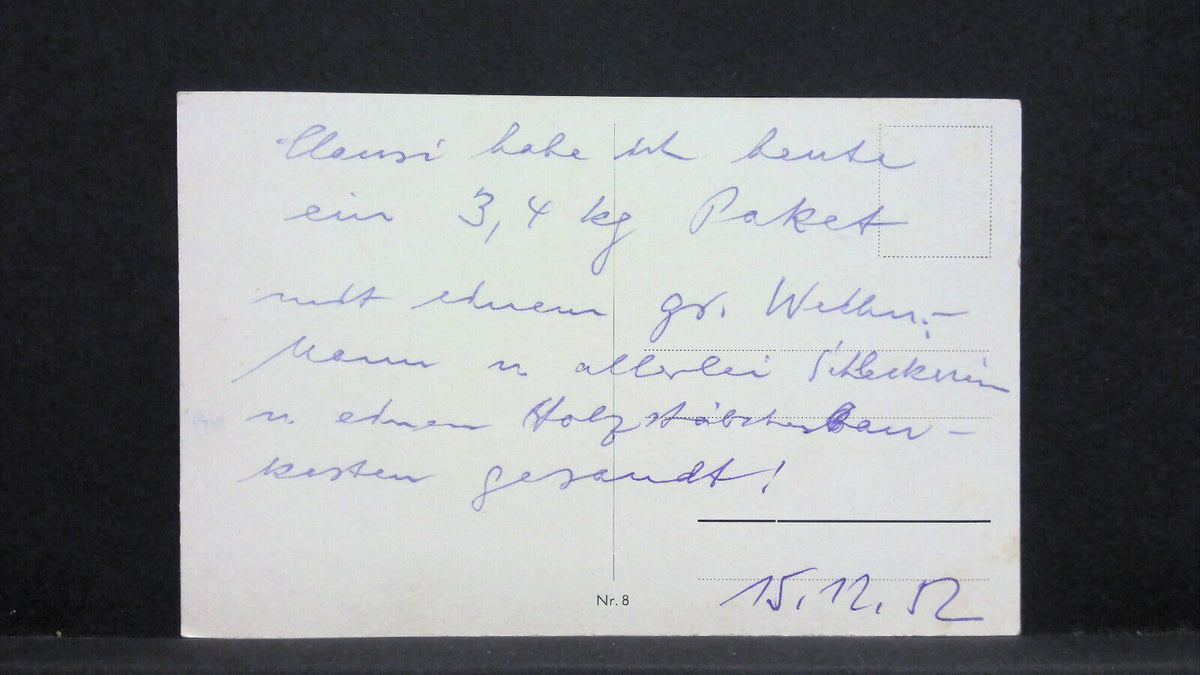 Clausi habe ich heute
ein 3,4 kg Paket
mit einem gr. Weihn.-
Mann u allerlei Schleckerein
u. einen Holzstäbchenbau-
kasten gesandt!
Nr. 8
15.12.52